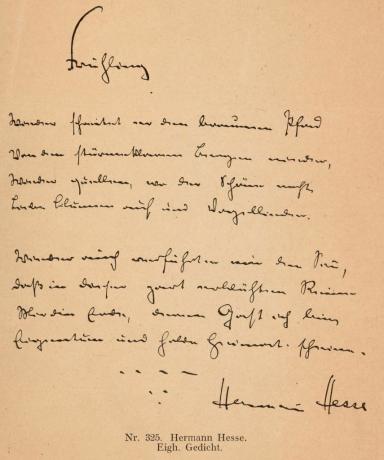 Frühling
Wieder schreitet er den braunen Pfad
Von den stürmeklaren Bergen nieder,
Wieder quellen, wo der Schöne naht,
Liebe Blumen auf und Vogellieder.
Wieder auch verführt er mir den Sinn,
daß in dieser zart erblühten Reine
Mir die Erde, deren Gast ich bin,
Eigentum und holde Heimat scheine.
Hermann Hesse
Nr. 325. Hermann Hesse.
Eigh. Gedicht.